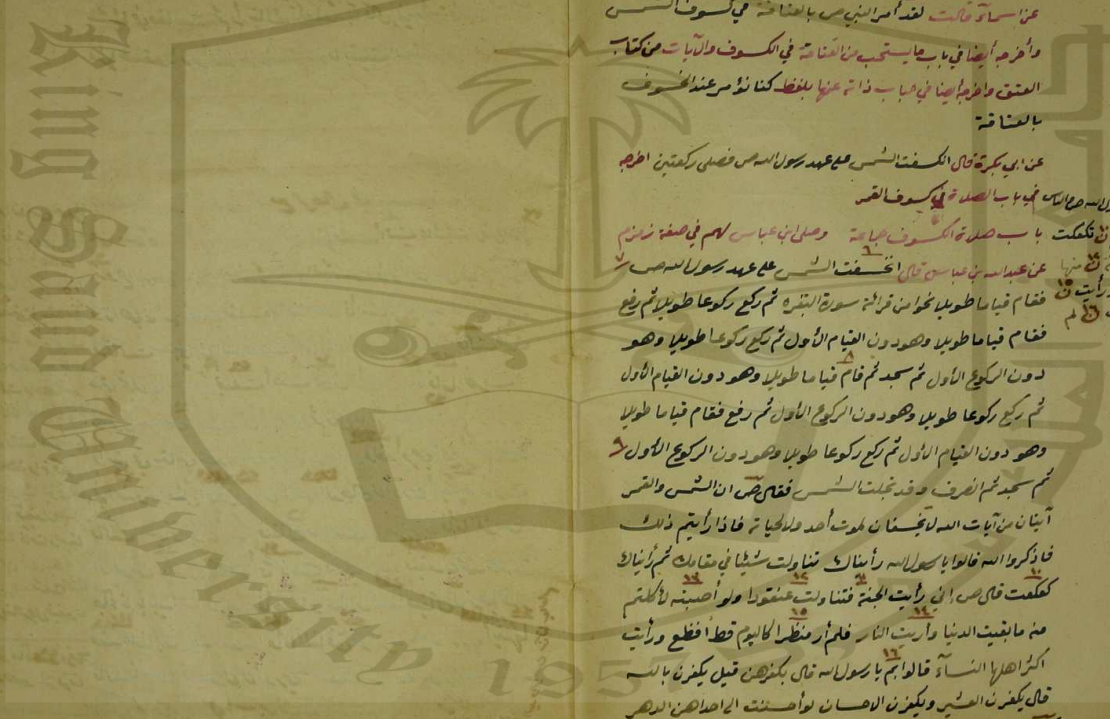 عن اسمآء قالت لقد أمر النبي ص بالعتاقة في كسوف الشمس
وأخرجه أيضا في باب ما يستحب من العتاقة في الكسوف والآيات من كتاب
العتق واخرجه أيضا في عنها بلفظ كنا نؤمر عند الخسوف
بالعتاقة
عن ابي بكرة قال انكسفت الشمس على عهد رسول الله ص فصلى ركعتين اخرجه
في باب الصلاة في كسوف القمر
باب صلاة الكسوف جماعة وصلى ابن عباس لهم في صفة زمزم
عن عبد الله بن عباس قال انخسفت الشمس على عهد رسول الله ص
فقام قياما طويلا نحوا من قرائة سورة البقره ثم ركع ركوعا طويلا ثم رفع
فقام قياما طويلا وهو دون القيام الأول ثم ركع ركوعا طويلا وهو
دون الركوع الأول ثم سجد ثم قام قياما طويلا وهو دون القيام الأول
ثم ركع ركوعا طويلا وهو دون الركوع الأول ثم رفع فقام قياما طويلا
وهو دون القيام الأول ثم ركع ركوعا طويلا وهو دون الركوع الأول
ثم سجد ثم انصرف وقد تجلت الشمس فقال ص ان الشمس والقمر
آيتان من آيات الله لا يخسفان لموت أحد ولا لحياته فاذا رأيتم ذلك
فاذكروا الله قالوا يا رسول الله رأيناك تناولت شيئا في مقامك ثم رأيناك
كعكعت قال ص إني رأيت الجنة فتناولت عنقودا ولو أصبته لأكلتم
منه ما بقيت الدنيا وأريت النار فلم أر منظرا كاليوم قط أفظع ورأيت
أكثر اهلها النسآء قالوا بم يا رسول الله قال بكفرهن قيل يكفرن بالله
قال يكفرن العشير ويكفرن الاحسان لو أحسنت الى احداهن الدهر
تكعكت
منها
ورأيت
لم
King Saud University
195